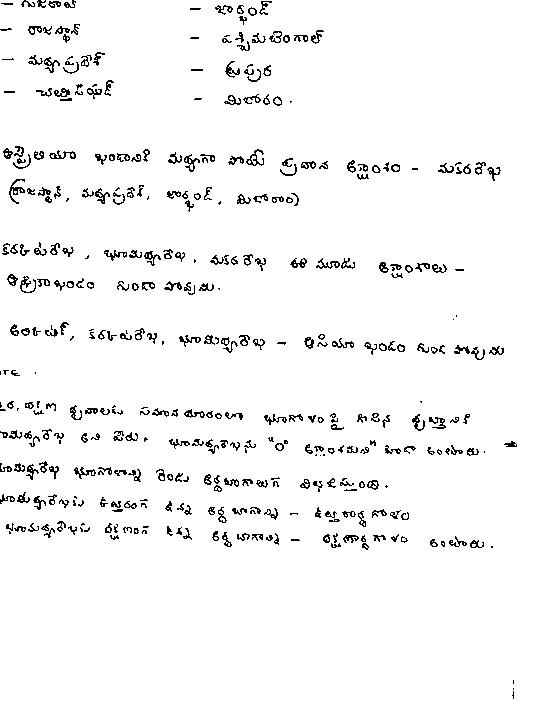 – గుజరాత్ – జార్ఖండ్
– రాజస్థాన్ – పశ్చిమబెంగాల్
– మధ్యప్రదేశ్ – త్రిపుర
– చత్తీస్‌ఘడ్ – మిజోరం.
ఆస్ట్రేలియా ఖండానికి మధ్యగా పోయే ప్రధాన అక్షాంశం – మకరరేఖ
(రాజస్థాన్, మధ్యప్రదేశ్, జార్ఖండ్, మిజోరాం)
కర్కటరేఖ, భూమధ్యరేఖ, మకరరేఖ ఈ మూడు అక్షాంశాలు –
ఆఫ్రికాఖండం గుండా పోవును.
ఆర్కటిక్, కర్కటరేఖ, భూమధ్యరేఖ – ఆసియా ఖండం గుండ పోవును
దక్షిణ ధృవాలకు సమాన దూరంలో భూగోళంపై గీసిన వృత్తానికి
భూమధ్యరేఖ అని పేరు. భూమధ్యరేఖను "0" అక్షాంశమని" కూడా అంటారు.
భూమధ్యరేఖ భూగోళాన్ని రెండు అర్ధభాగాలుగ విభజిస్తుంది.
భూమధ్యరేఖకు ఉత్తరంగ ఉన్న అర్ధభాగాన్ని – ఉత్తరార్ధగోళం
భూమధ్యరేఖకు దక్షిణంగ ఉన్న అర్ధభాగాన్ని – దక్షిణార్ధగోళం అంటారు.